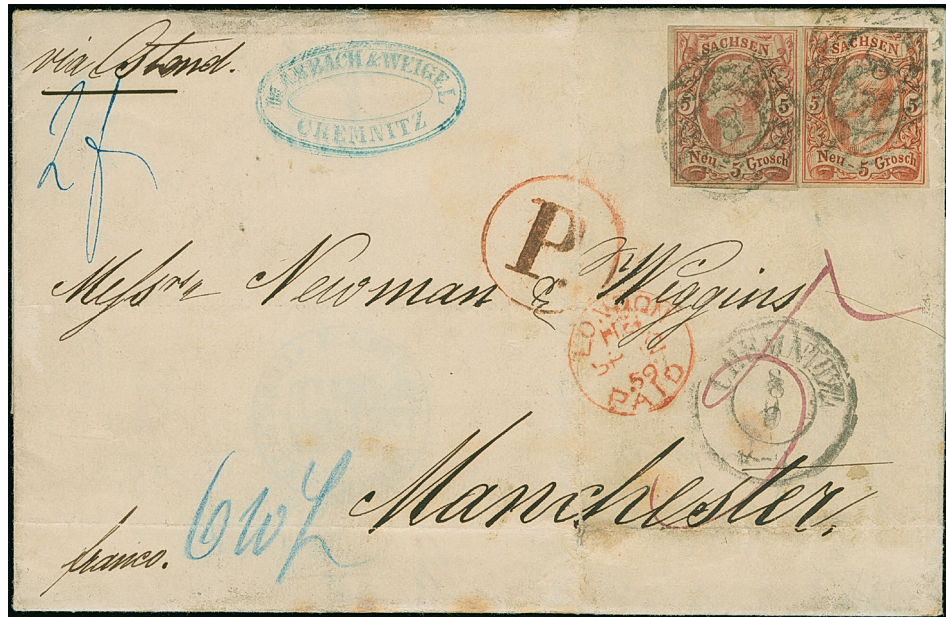 via Ostend.
& WEIGEL
CHEMNITZ
SACHSEN
5 5
Neu - 5 Grosch
SACHSEN
5 5
Neu - 5 Grosch
2f
P.
Messrs Newman & Wiggins
LONDON
59
PAID
CHEMNITZ
Manchester,
franco.